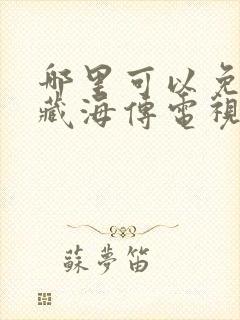 哪里可以免
藏海傳電視
蘇夢笛